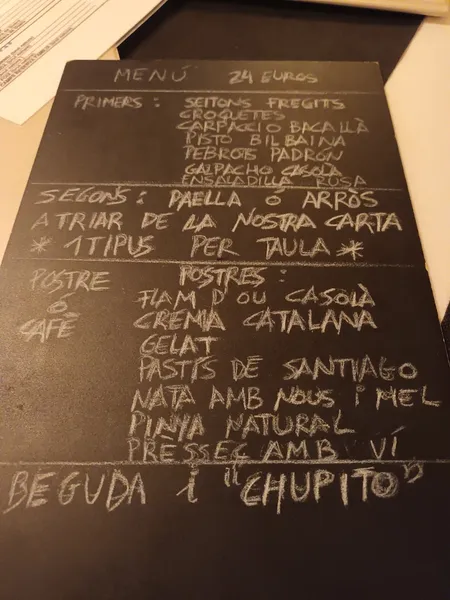 MENÚ 24 EUROS
PRIMERS: SEITONS FREGITS
CROQUETES
CARPACCIO BACALLÀ
PISTO BILBAINA
PEBROTS PADRÓN
GALPACHO CASOLA
ENSALADILLA ROSA
SEGONS: PAELLA Ó ARRÒS
A TRIAR DE LA NOSTRA CARTA
* 1 TIPUS PER TAULA *
POSTRE Ó CAFÈ
POSTRES:
FLAM D'OU CASOLÀ
CREMA CATALANA
GELAT
PASTÍS DE SANTIAGO
NATA AMB NOUS i MEL
PINYA NATURAL
PRÈSSEC AMB VÍ
BEGUDA i "CHUPITO"